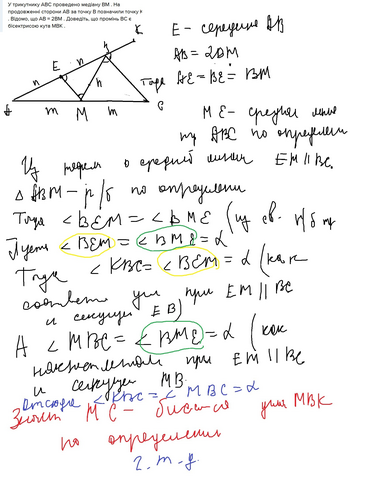 У трикутнику ABC проведено медіану BM . На
продовженні сторони AB за точку B позначили точку K
. Відомо, що AB = 2BM . Доведіть, що промінь BC є
бісектрисою кута MBK .
K
n
E
n
n
A
m
M
m
C
E - середина AB
AB = 2BM
Тогда AE = BE = BM
ME - средняя линия
ABC по определени
Из теорем о средней линии EM || BC.
Δ BM - р/б по определени
Тогда ∠BEM = ∠BME (из св. р/б тр
Пусть ∠BEM = ∠BME = α
Тогда ∠KBC = ∠BEM = α (как
соответ угл при EM || BC
и секущи EB)
А ∠MBC = ∠BME = α (как
накрестлежащ при EM || BC
и секущи MB.
Отсюда ∠KBC = ∠MBC = α
Значит MC - биссе-са угла MBK
по определени
ч. т. д.